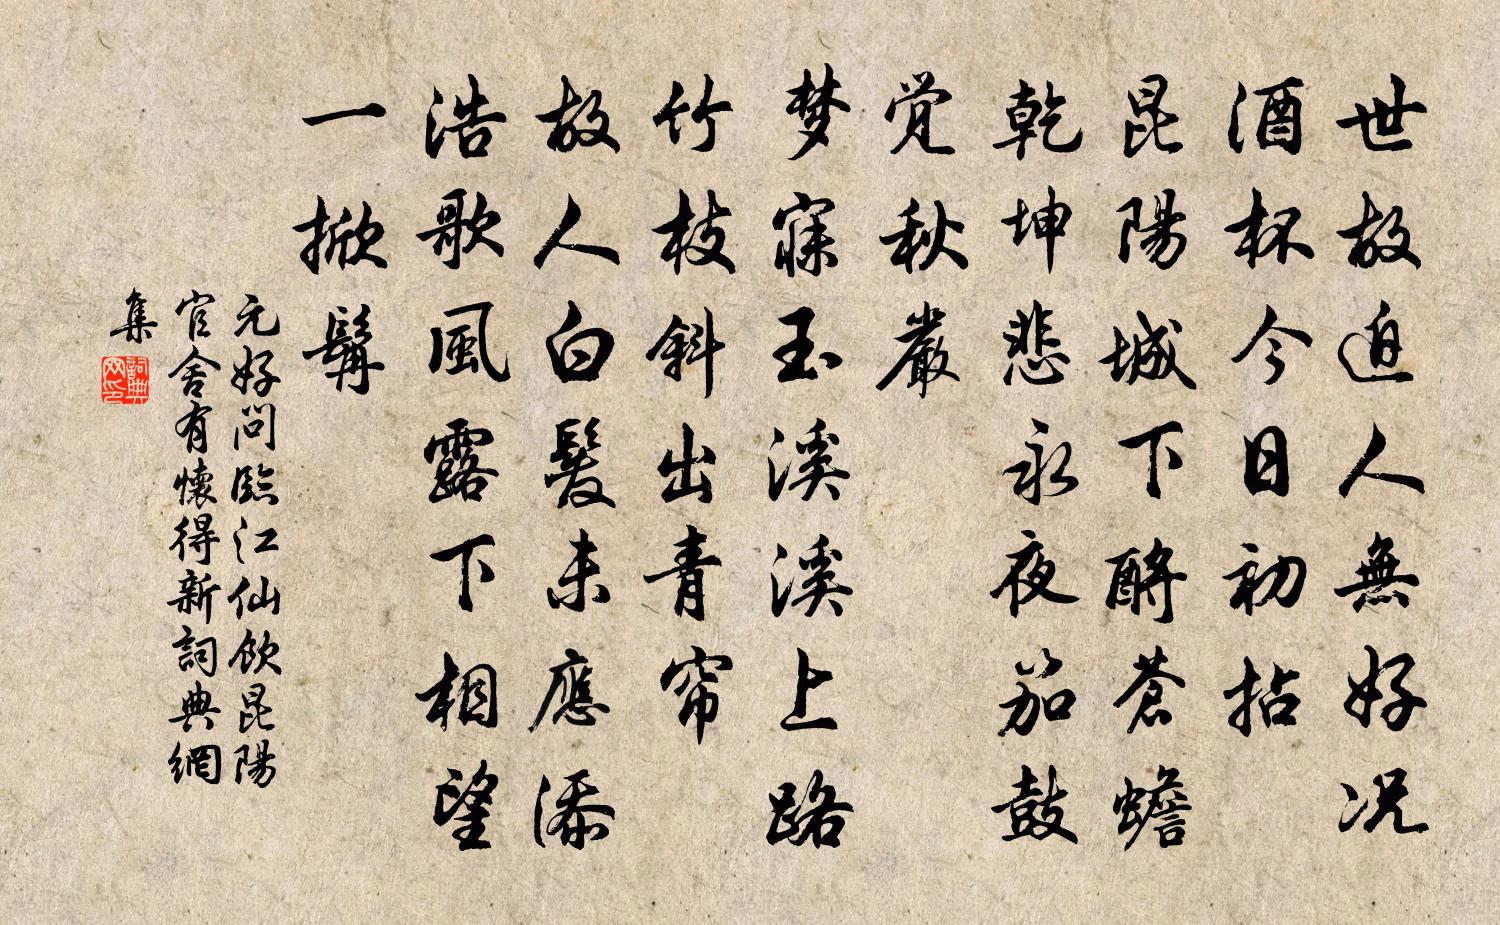 世故迫人無好况
酒杯今日初拈
昆陽城下酹蒼蟾
乾坤悲永夜笳鼓
覚秋嚴
梦寐玉溪溪上路
竹枝斜出青帘
故人白髮未應添
浩歌風露下相望
一掀髯
元好問臨江仙飲昆陽
官舍有懷得新詞典網
集
詞典网印